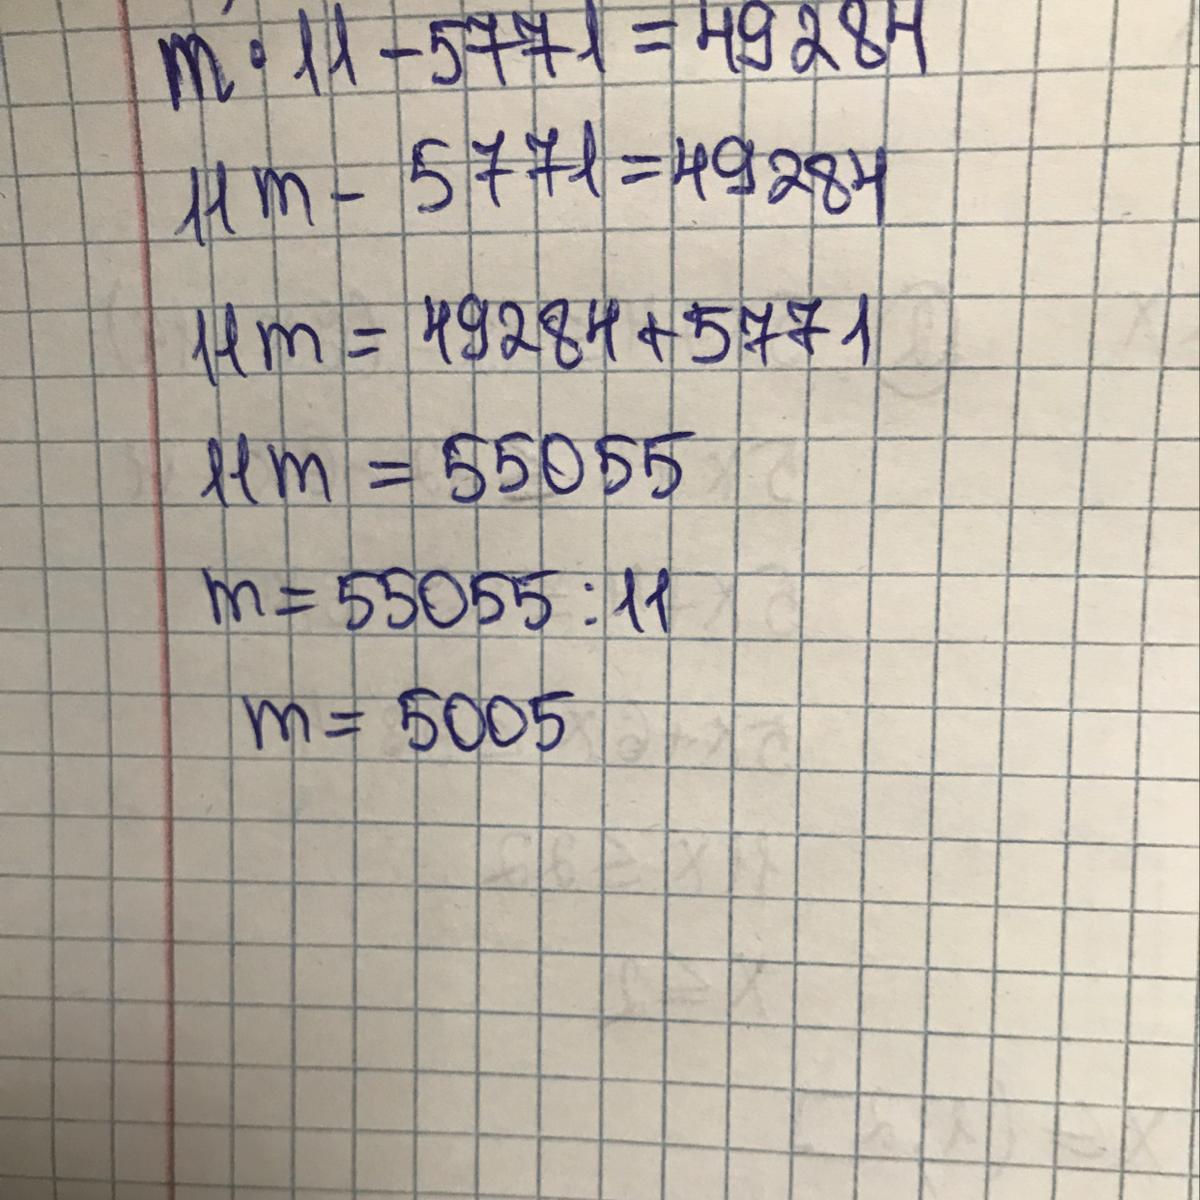 m · 11 - 5771 = 49284
11m - 5771 = 49284
11m = 49284 + 5771
11m = 55055
m = 55055 : 11
m = 5005